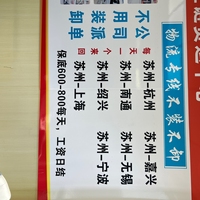 物流专线不装不卸
不用装卸
公司派单
每天一个来回
苏州-杭州 苏州-嘉兴
苏州-南通 苏州-无锡
苏州-绍兴 苏州-宁波
苏州-上海
保底600-800每天，工资日结